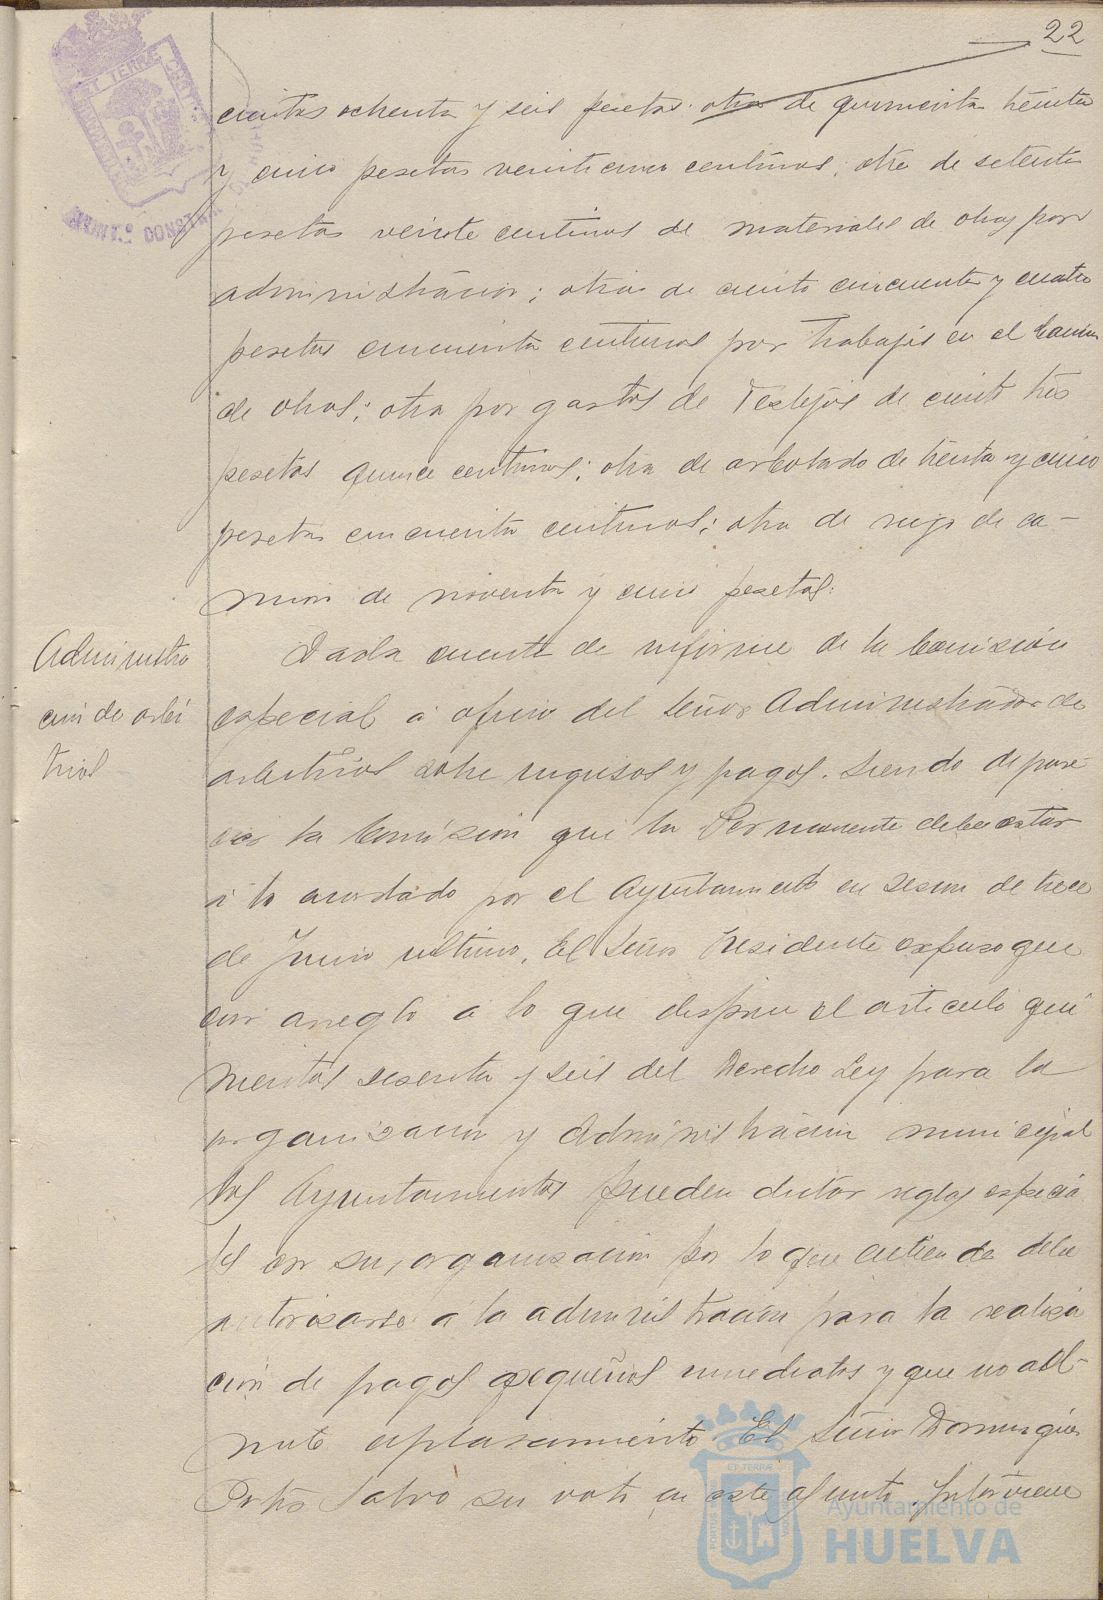 22
cientas ochenta y seis pesetas; otra de quinientas treinta
y cinco pesetas veinticinco centimos; otra de setenta
pesetas veinte centimos de materiales de obras por
administración; otra de ciento cincuenta y cuatro
pesetas cincuenta centimos por trabajos en el camion
de obras; otra por gastos de Festejos de ciento tres
pesetas quince centimos; otra de arbolado de treinta y cinco
pesetas cincuenta centimos; otra de riego de ca-
mion de noventa y cinco pesetas.
Administra
cion de arbi
trios
Dada cuenta de informe de la Comisión
especial a oficio del Señor Administrador de
arbitrios sobre ingresos y pagos. Siendo de pare-
cer la Comisión que la Permanente debe estar
a lo acordado por el Ayuntamiento en sesion de trece
de Junio ultimo, El Señor Presidente expuso que
con arreglo a lo que dispone el articulo qui
nientos sesenta y seis del Derecho Ley para la
organizacion y Administración municipal
los Ayuntamientos pueden dictar reglas especia
les en su organización por lo que entiende debe
autorizarse a la administración para la realiza
ción de pagos pequeños inmediatos y que no ad-
mite aplazamiento. El Señor Dominguez
Ortiz salvó su voto en este asunto. Interviene
ET TERRÆ
Ayuntamiento de
HUELVA